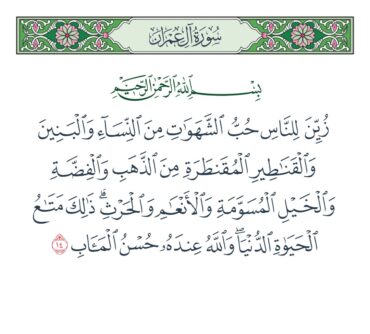 سُورَةُ آلِ عِمْرَانَ
بِسْمِ ٱللَّهِ ٱلرَّحْمَٰنِ ٱلرَّحِيمِ
زُيِّنَ لِلنَّاسِ حُبُّ ٱلشَّهَوَٰتِ مِنَ ٱلنِّسَآءِ وَٱلْبَنِينَ
وَٱلْقَنَٰطِيرِ ٱلْمُقَنطَرَةِ مِنَ ٱلذَّهَبِ وَٱلْفِضَّةِ
وَٱلْخَيْلِ ٱلْمُسَوَّمَةِ وَٱلْأَنْعَٰمِ وَٱلْحَرْثِۗ ذَٰلِكَ مَتَٰعُ
ٱلْحَيَوٰةِ ٱلدُّنْيَاۖ وَٱللَّهُ عِندَهُۥ حُسْنُ ٱلْمَـَٔابِ ١٤